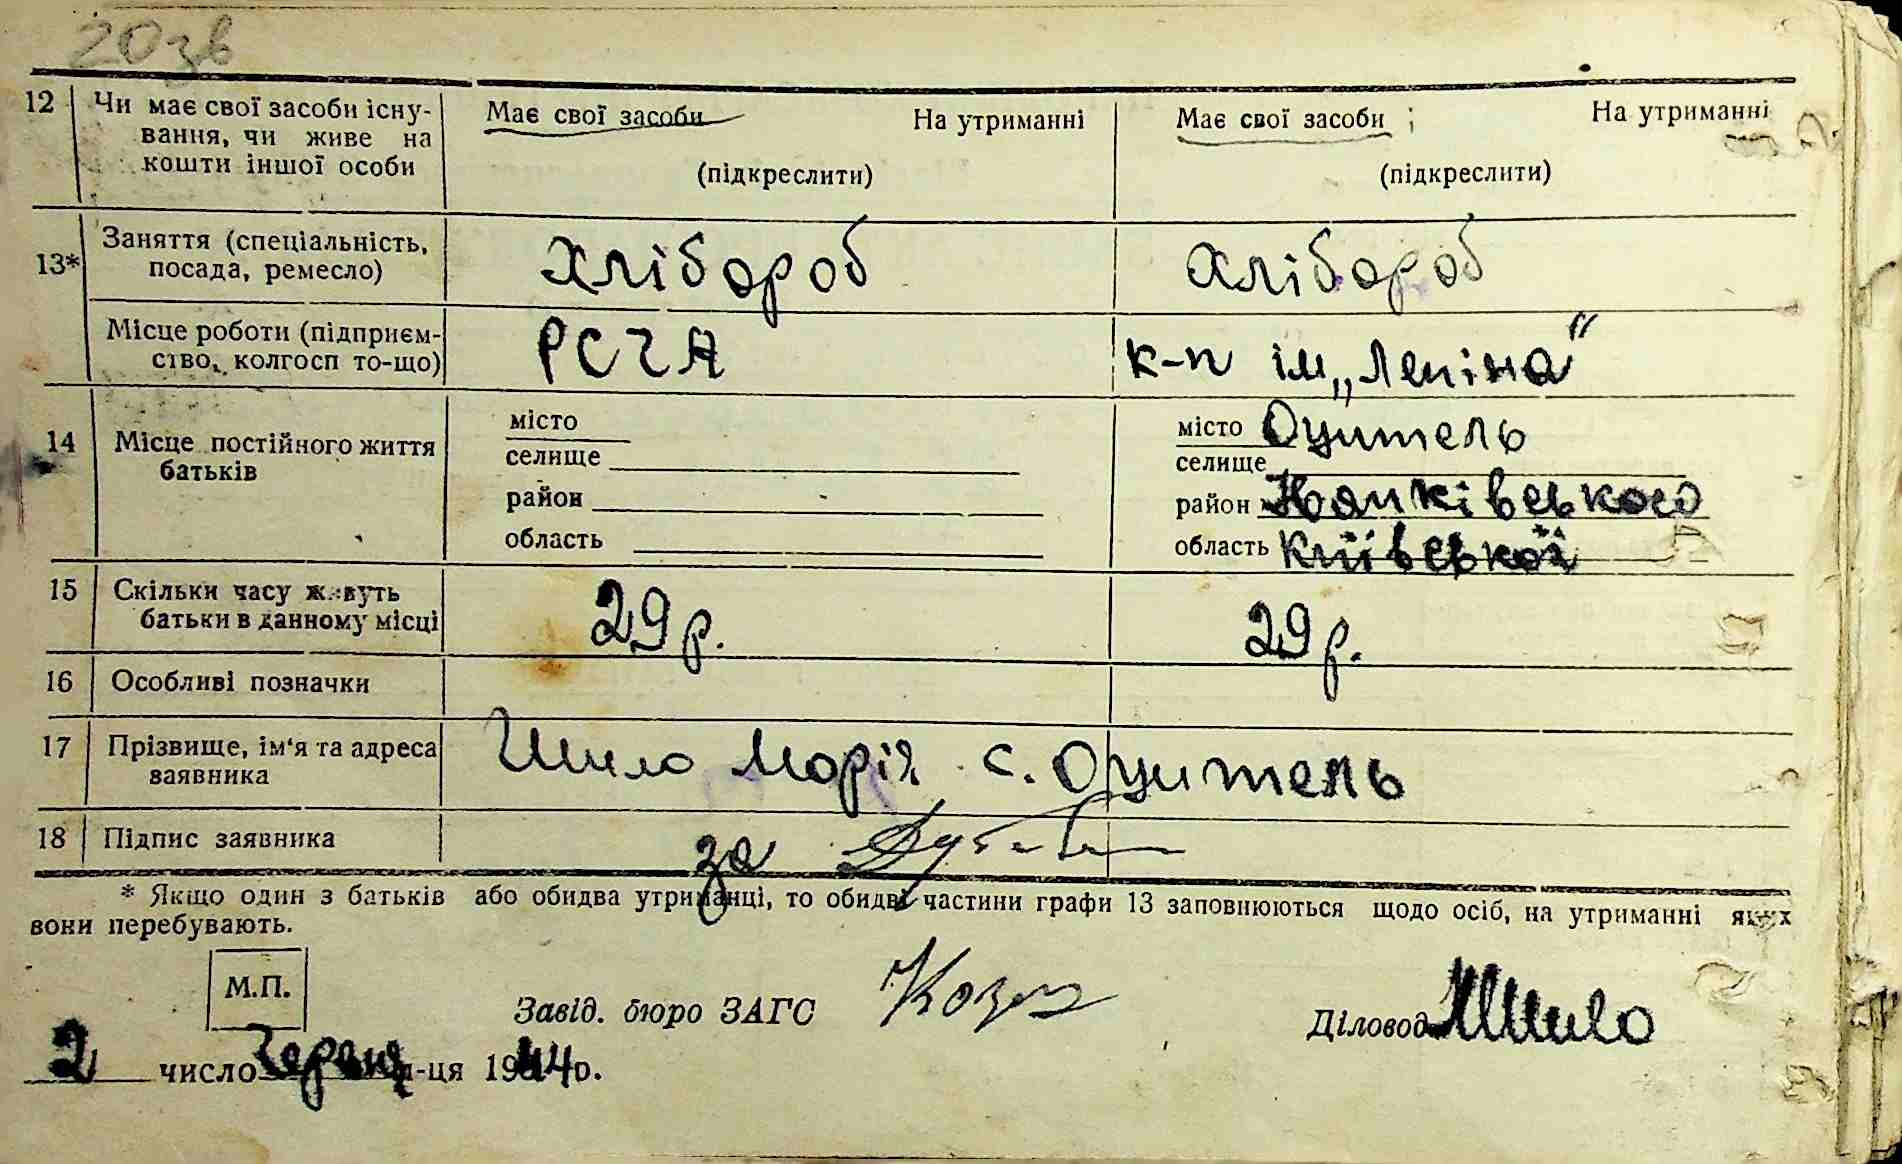 20зв
12 Чи має свої засоби існу- Має свої засоби На утриманні Має свої засоби ; На утриманні
вання, чи живе на
кошти іншої особи (підкреслити) (підкреслити)
13* Заняття (спеціальність, хлібороб хлібороб
посада, ремесло)
Місце роботи (підприєм- РСЧА к-п ім „Леніна“
ство, колгосп то-що)
14 Місце постійного життя місто місто Оцитель
батьків селище селище
район район
область область Київської
15 Скільки часу живуть 29 р. 29 р.
батьки в данному місці
16 Особливі позначки
17 Прізвище, ім‘я та адреса Шило Марія с. Оцитель
заявника
18 Підпис заявника за
* Якщо один з батьків або обидва утриманці, то обидві частини графи 13 заповнюються щодо осіб, на утриманні яких
вони перебувають.
М.П.
Завід. бюро ЗАГС Діловод МШило
2 число Червня м-ця 1944 р.